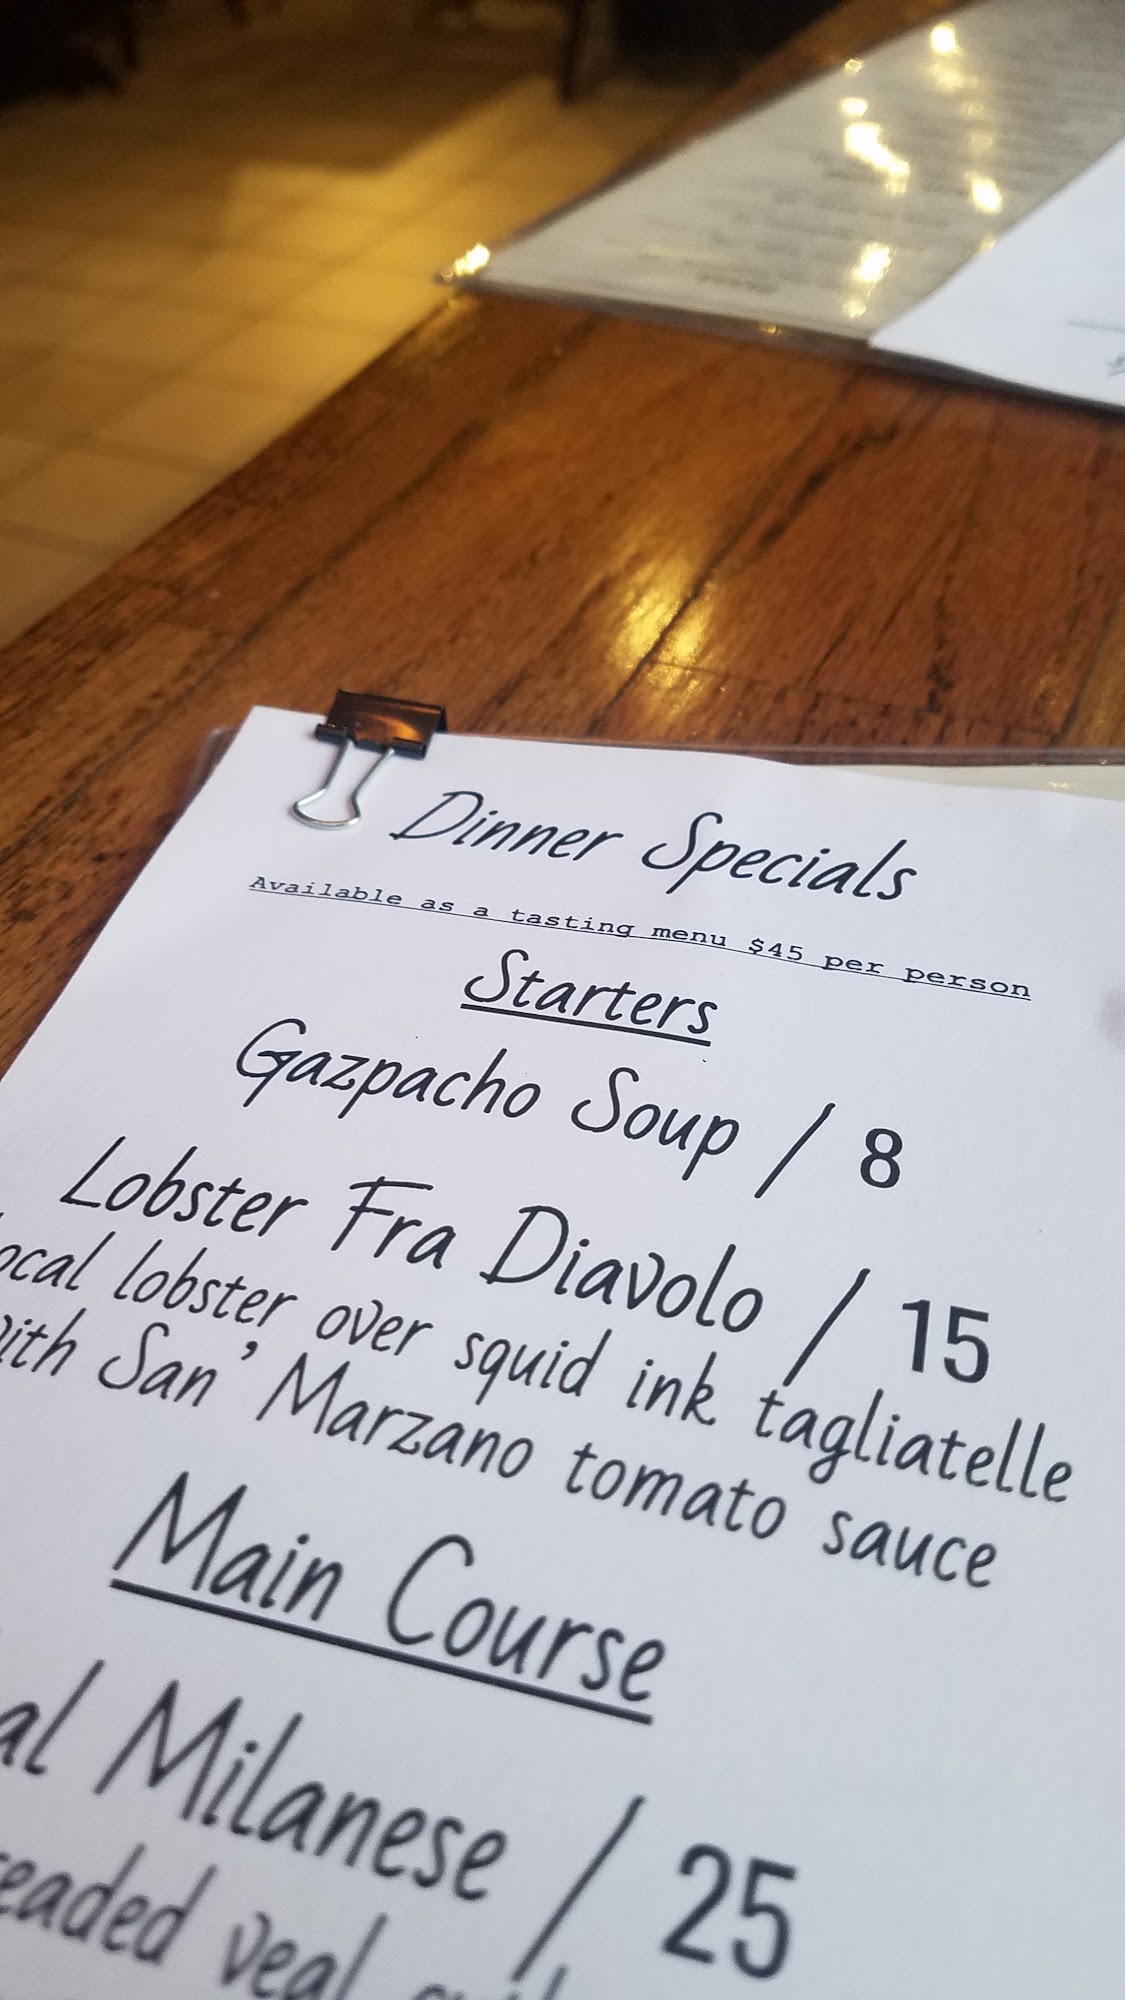 Dinner Specials
Available as a tasting menu $45 per person
Starters
Gazpacho Soup / 8
Lobster Fra Diavolo / 15
ocal lobster over squid ink tagliatelle
ith San' Marzano tomato sauce
Main Course
al Milanese / 25
eaded veal